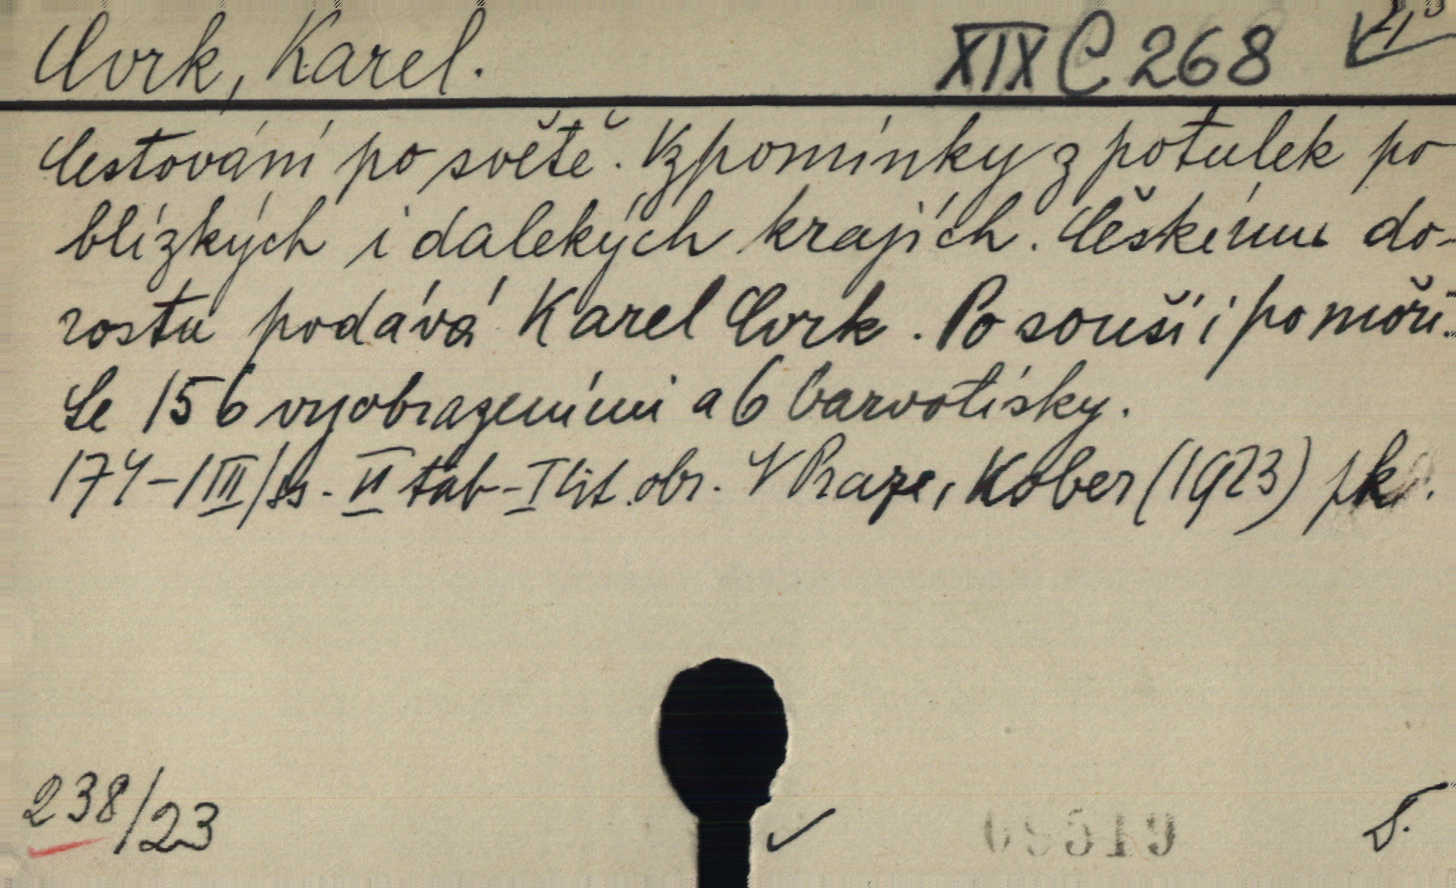 Cvrk, Karel. XIX C 268
Cestování po světě. Vzpomínky z potulek po
blízkých i dalekých krajích. Českému do-
rostu podává Karel Cvrk. Po souši i po moři.
Se 156 vyobrazeními a 6 barvotisky.
174-III/ss. II tab-I lit. obr. V Praze, Kober (1923) pk.
238/23